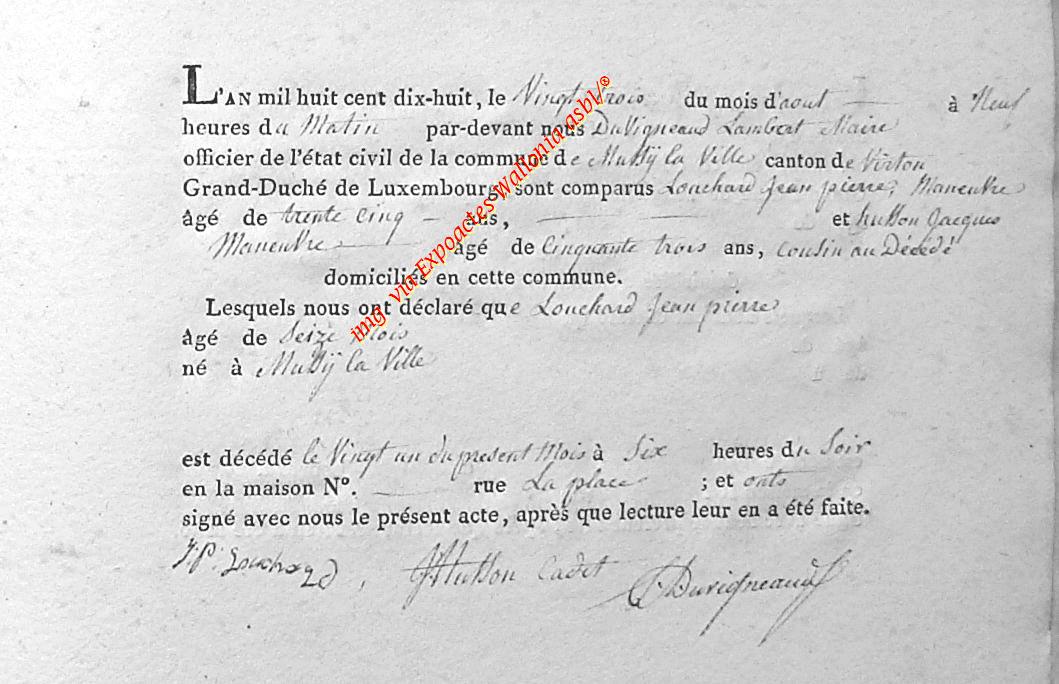 L'AN mil huit cent dix-huit, le Vingt trois du mois d'aout à Neuf
heures du Matin par-devant nous DuVigneaud Lambert Maire
officier de l'état civil de la commune de Mussÿ la Ville canton de Virton
Grand-Duché de Luxembourg, sont comparus Louchard Jean pierre, Maneuvre
âgé de trente Cinq ans, et husson Jacques
Maneuvre âgé de Cinquante trois ans, cousin au Décédé
domiciliés en cette commune.
Lesquels nous ont déclaré que Louchard Jean pierre
âgé de Seize Mois
né à Mussÿ la Ville
est décédé le Vingt un du present Mois à Six heures du Soir
en la maison N°. rue La place ; et onts
signé avec nous le présent acte, après que lecture leur en a été faite.
J.P. Louchard, J Husson Cadet Duvigneaud
img via Expoactes Wallonia asbl/®